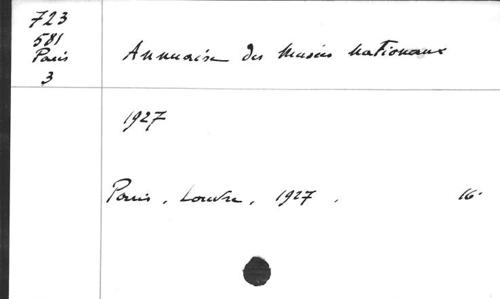 723
581
Paris
3
Annuaire des Musées Nationaux
1927
Paris, Louvre, 1927.
16°